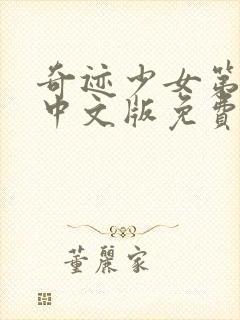 奇迹少女第
中文版免费
董丽家